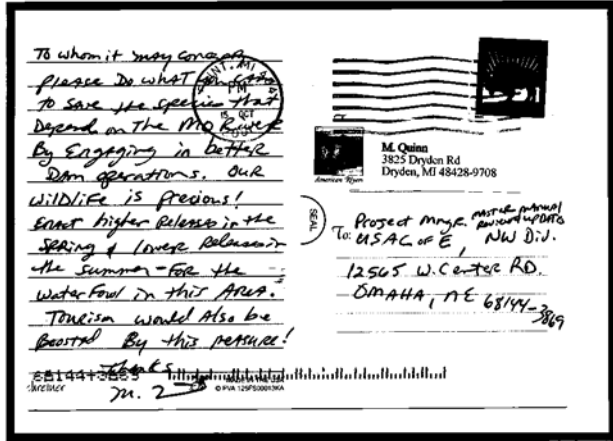 To whom it may concern
please Do what you can
to save the species that
Depend on The Mo River
By Engaging in better
Dam operations. Our
wildlife is precious!
Enact higher Releases in the
Spring & lower Releases in
the summer - for the
waterfowl in this AREA.
Tourism would Also be
Boosted By this measure!
Thanks
M. Q
FLINT, MI 484
PM
15 OCT
M. Quinn
3825 Dryden Rd
Dryden, MI 48428-9708
American Rivers
SEAL
To: Project Mngr. MASTER MANUAL
REVIEW UPDATE
USAC of E, NW Div.
12565 W. Center RD.
OMAHA, NE 68144-
3869
68144+3869
MADE IN THE USA
© PVA